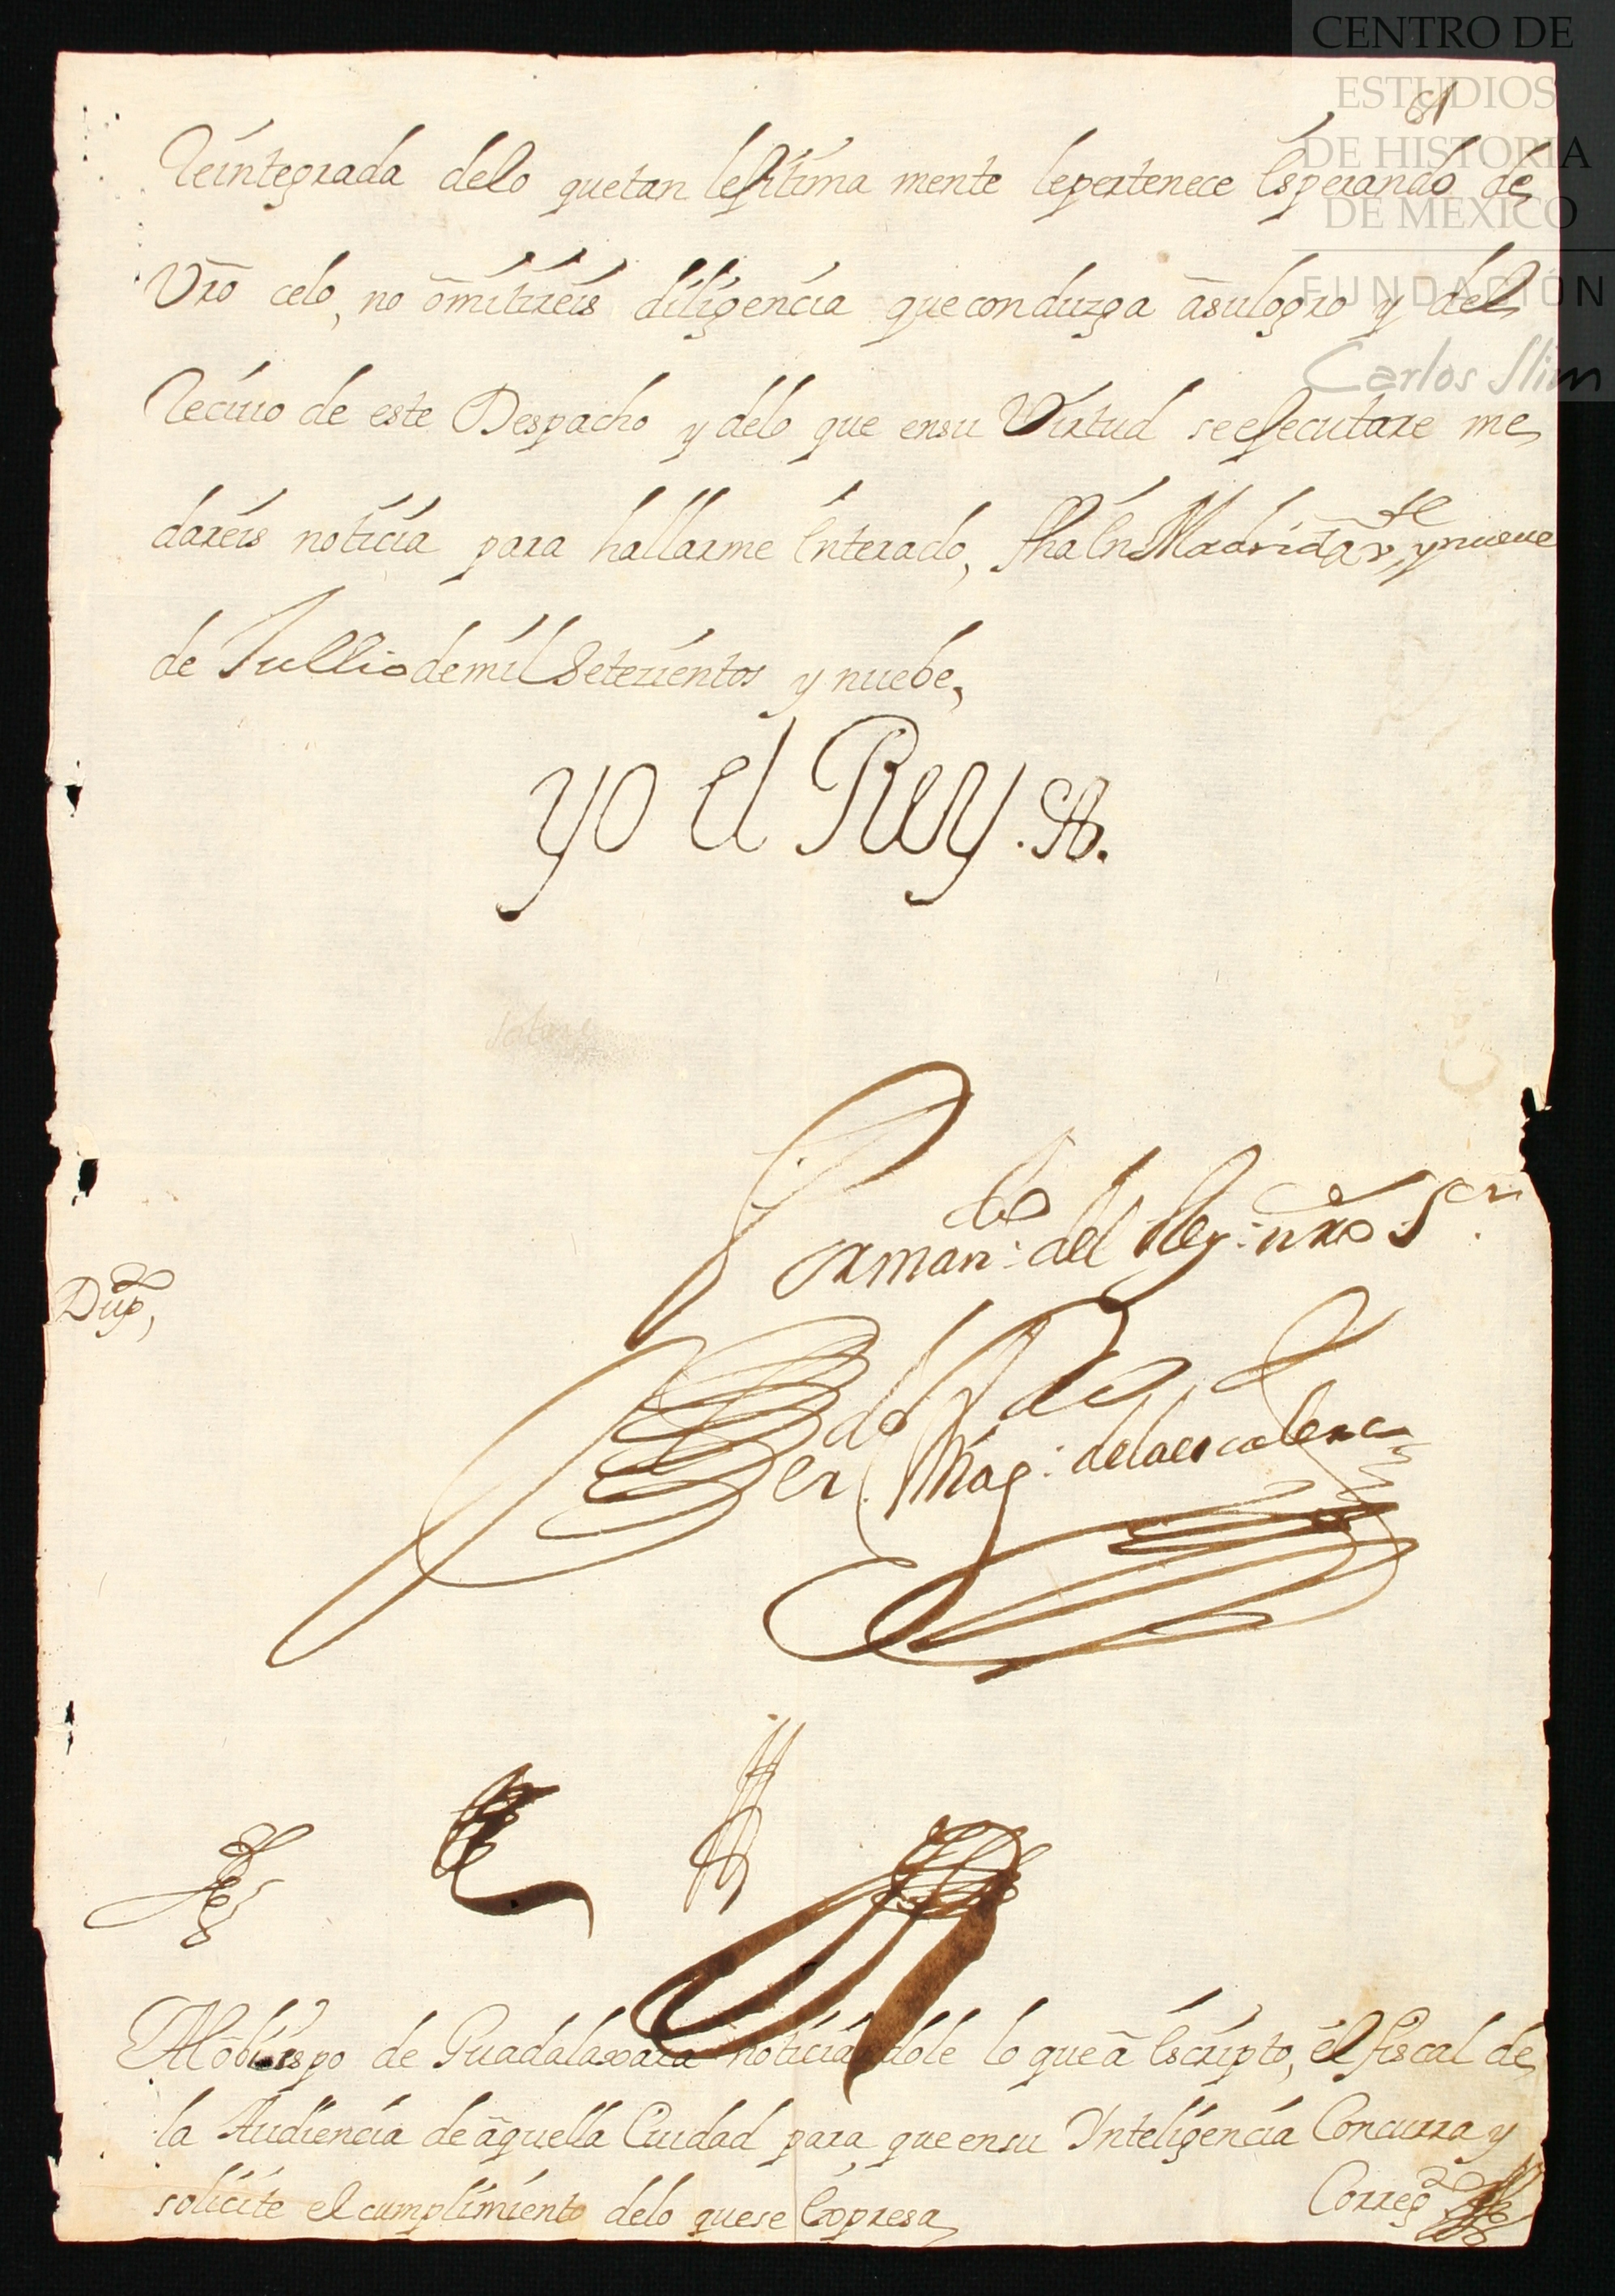 CENTRO DE
ESTUDIOS
DE HISTORIA
DE MEXICO
FUNDACIÓN
Carlos Slim
81
Reintegrada delo quetan lefitima mente lepertenece Esperando de
Vrõ celo, no õmitireis diligencia queconduzga ãsulogro y del
Recivo de este Despacho y delo que ensu Virtud seefecutare me
dareis noticia para hallarme Enterado, fha En Madrid a y nueue
de Jullio demil Setezientos y nuebe,
yo el Rey
Por mand.do del Rey nrõ S.or
Dup.do,
Alõbispo de Guadalaxara noticiandole lo queã Escripto, él fiscal de
la Audiencia deãquella Ciudad para queensu Inteligencia Concurra y
solicite el cumplimiento delo quese Expresa,
Correg.do